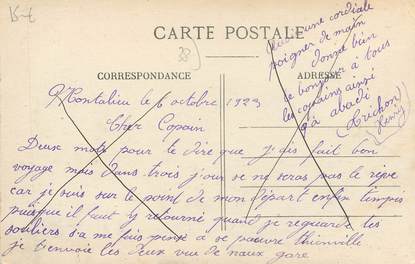 15-E
CARTE POSTALE
38
CORRESPONDANCE
ADRESSE
Montalieu le 6 octobre 1923
Cher Copain
Deux mots pour te dire que j'ais fait bon
voyage mais dans trois jour se ne seras pas le rêve
car je suis sur le point de mon départ enfin tempis
puisque il faut y retourné quand je reguarde tes
souliers s'a me fais pensé a se pauvre thionville
je t'envoie les deux vue de naux gare
une cordiale
poigner de main
donze bien
le bonjour à tous
les copains ainsi
q'à abadi